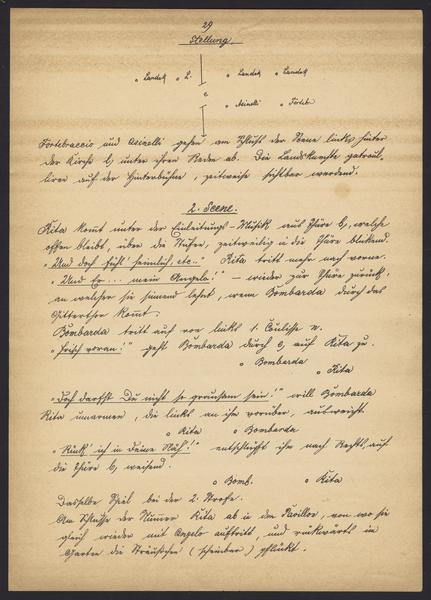 29
Stellung.
Landsk L. Landsk Landsk
c
Asinelli Forteb.
Fortebraccio und Asinelli gehen am Schluß der Scene links hinter
der Kirche b, unter ihren Reden ab. Die Landsknechte patroul-
liren auf der Hinterbühne, zeitweise sichtbar werdend.
2. Scene.
Rita kommt unter der Einleitungs-Musik aus Thüre b, welche
offen bleibt, über die Bühne, zeitweilig in die Thüre blickend.
"Und doch fühl' heimlich, etc." Rita tritt mehr nach vorne.
"Und Er... mein Angelo!" — wieder zur Thüre zurück
an welcher sie sinnend lehnt, wenn Bombarda durch das
Gitterthor kommt.
Bombarda tritt auf von links 1. Coulisse n.
"Frisch voran!" geht Bombarda durch c, auf Rita zu.
Bombarda
Rita
"Doch darfst Du nicht so grausam sein!" will Bombarda
Rita umarmen, die links an ihm vorüber, ausweicht.
Rita Bombarda
"Rück' ich in Deine Näh'!" entschlüpft ihm nach Rechts, auf
die Thüre b, weisend.
Bomb. Rita
Dasselbe Spiel bei der 2. Strofe.
Am Schlusse der Nummer Rita ab in den Pavillon, von wo sie
gleich wieder mit Angelo auftritt, und rückwärts im
Garten die Sträußchen (scheinbar) pflückt.